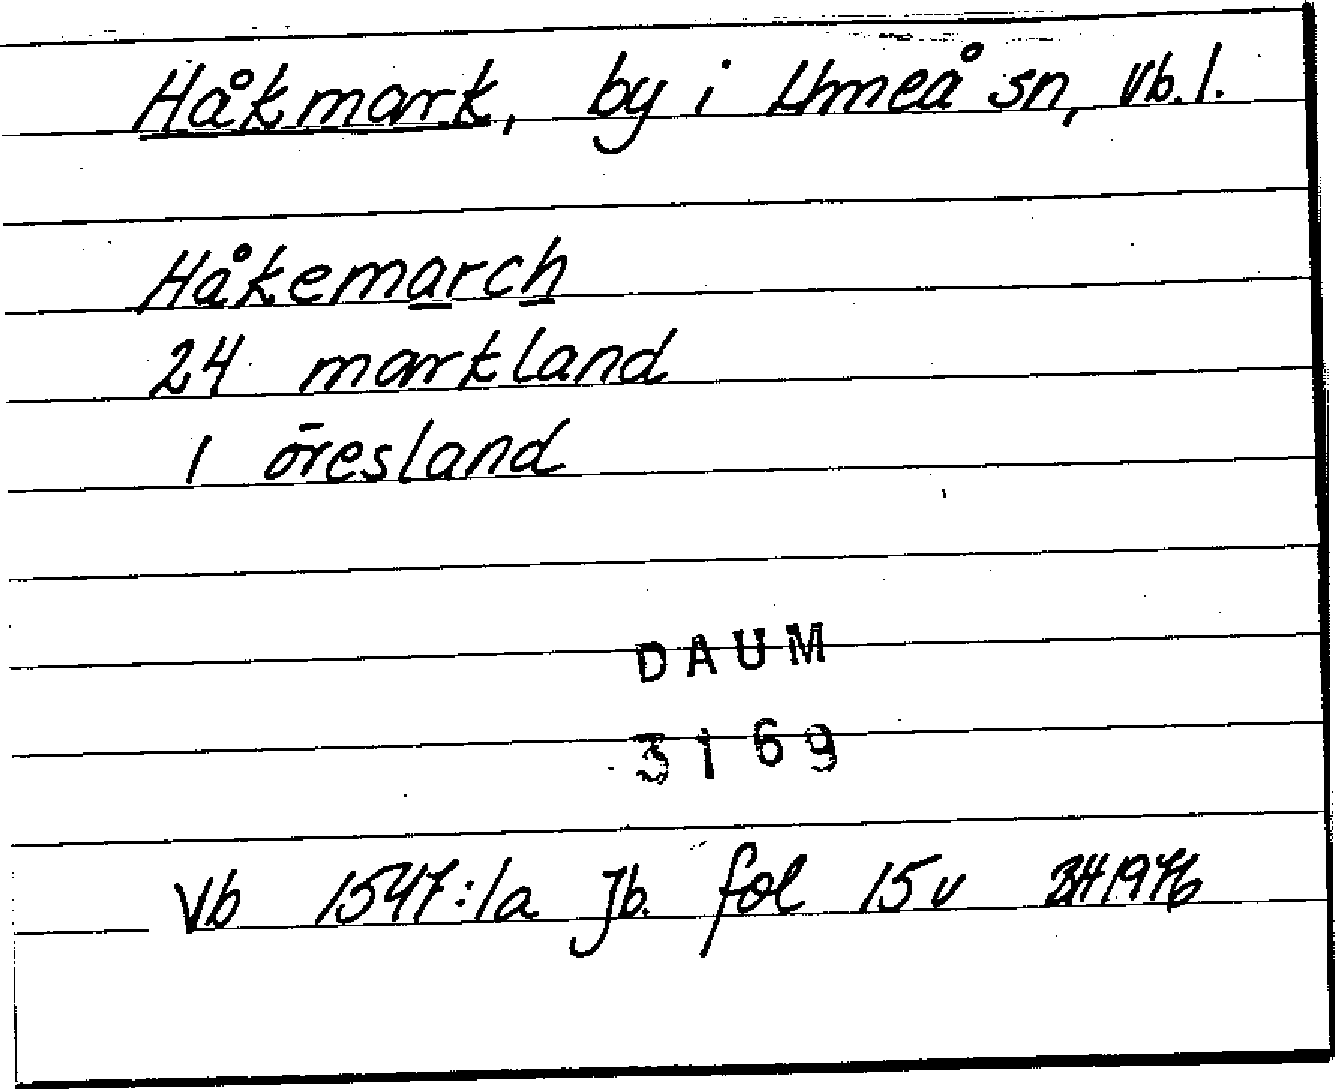 Håkmark, by i Umeå sn, Vb.l.
Håkemarch
24 markland
1 öresland
DAUM
3169
Vb 1547:1a Jb. fol 15v 1976